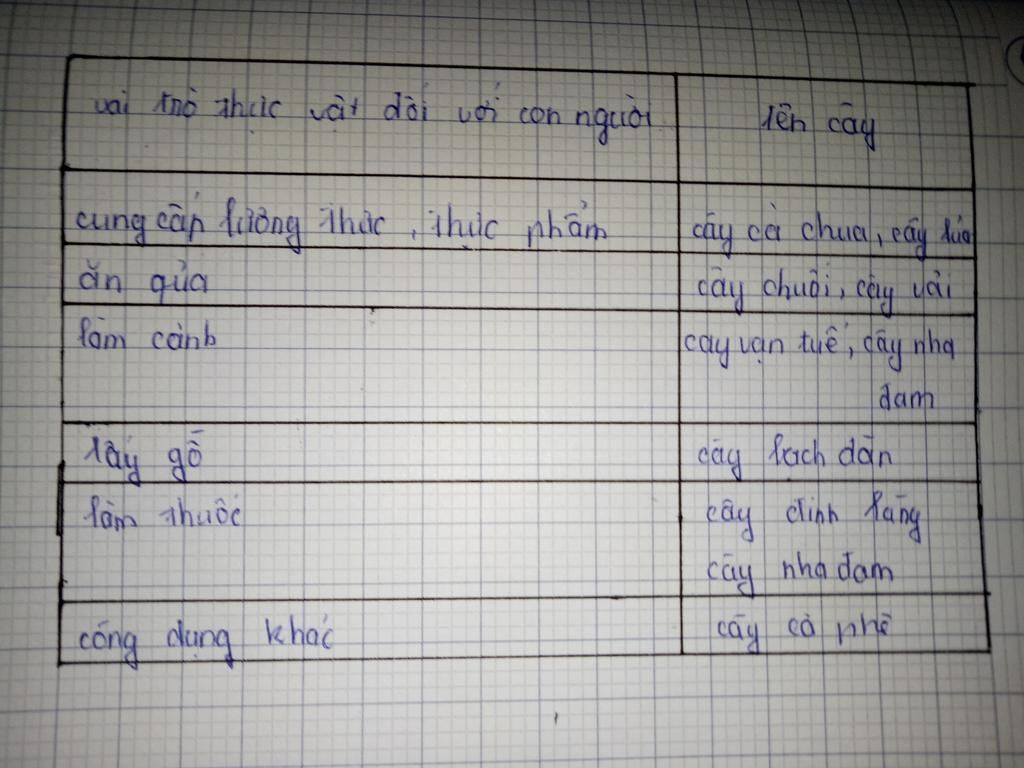 vai trò thực vật đối với con người
tên cây
cung cấp lương thực, thực phẩm
cây cà chua, cây lúa
ăn qủa
cây chuối, cây vải
làm cảnh
cây vạn tuế, cây nha
đam
lấy gỗ
cây bạch đàn
làm thuốc
cây đinh lăng
cây nha đam
công dụng khác
cây cà phê